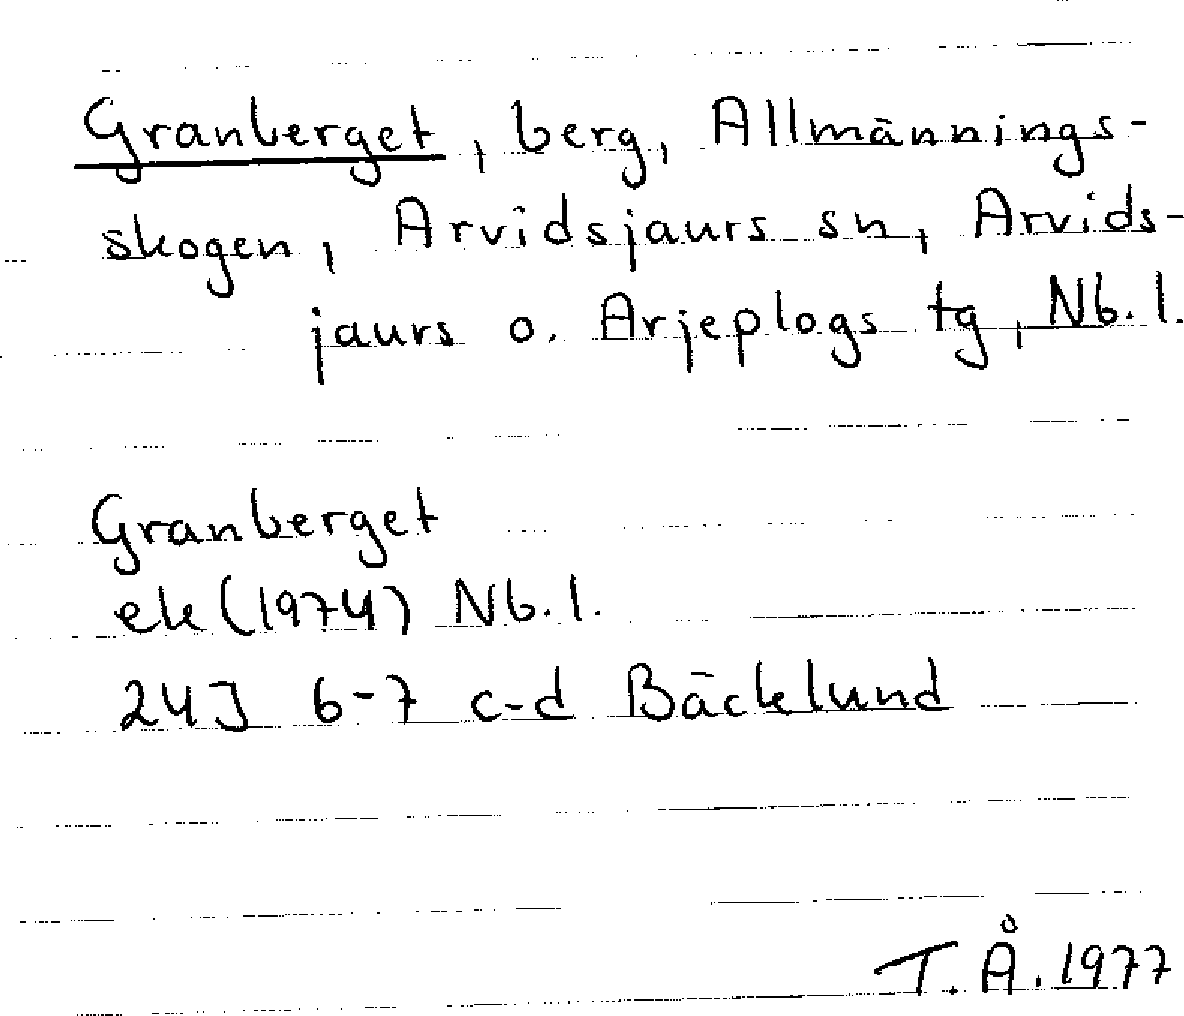 Granberget, berg, Allmännings-
skogen, Arvidsjaurs sn, Arvids-
jaurs o. Arjeplogs tg, Nb. l.
Granberget
ek (1974) Nb. l.
24J 6-7 c-d Bäcklund
T. Å. 1977